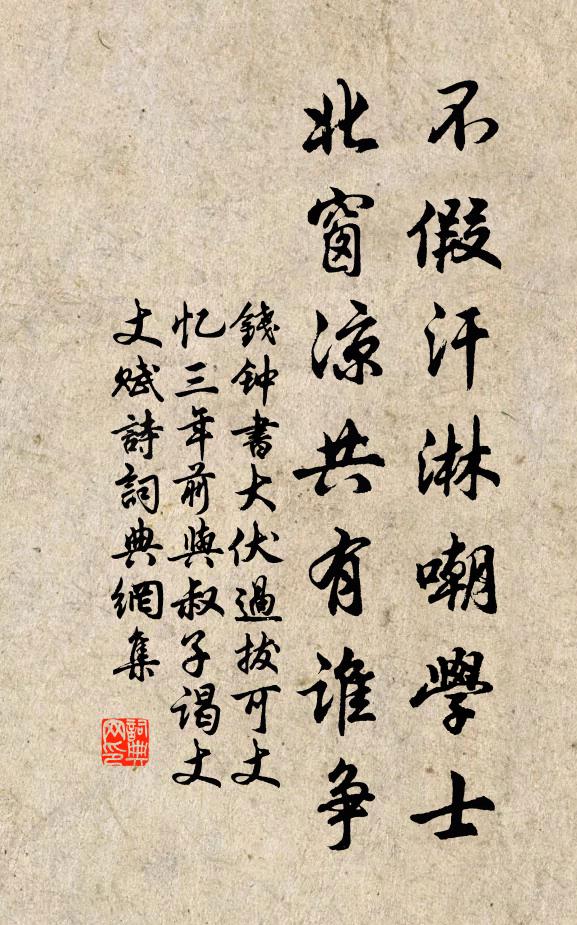 不假汗淋嘲學士
北窗凉共有誰爭
錢钟書大伏過拔可丈
忆三年前與叔子谒丈
丈赋詩詞典網集
詞典网印